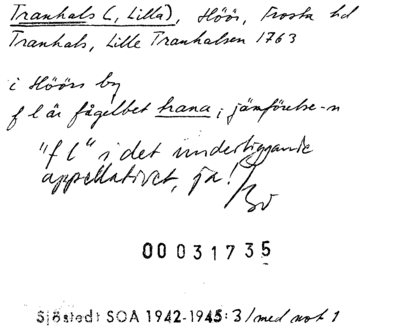 Tranhals (, Lilla), Höör, Frosta hd
Tranhals, Lille Tranhalsen 1763
i Höörs by
f l är fågelbet trana i jämförelse-n
"f l" i det underliggande
appellativet, ja!
00031735
Sjöstedt SOA 1942-1945:3/med not 1